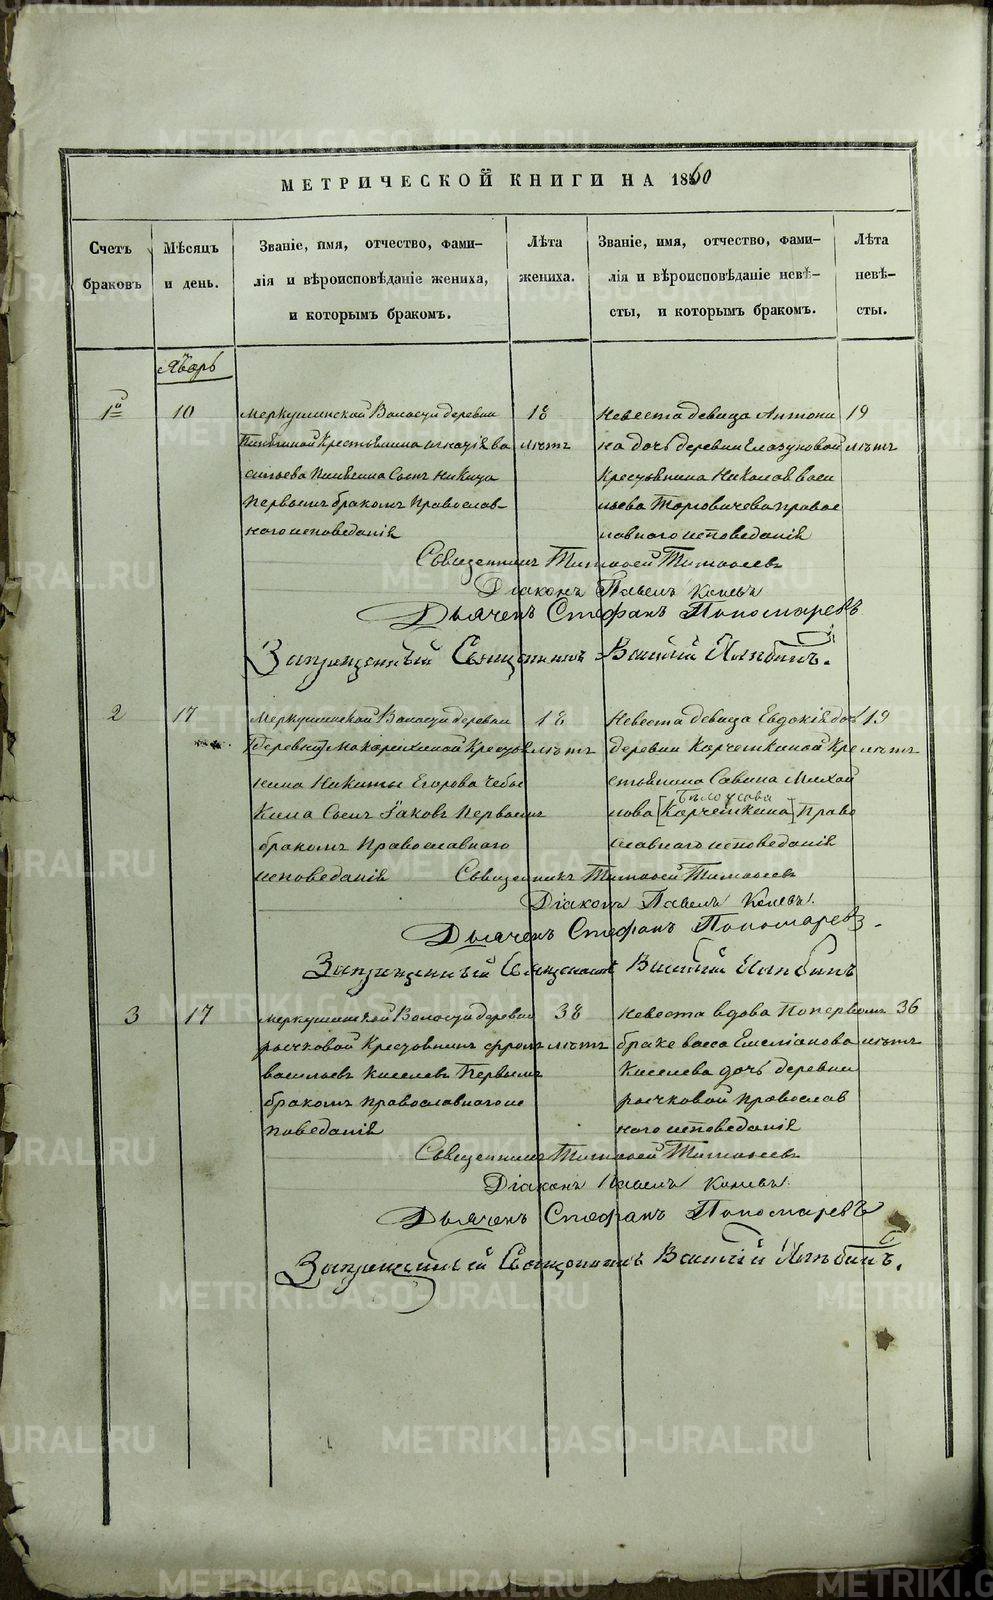 МЕТРИЧЕСКОЙ КНИГИ НА 1860
Счетъ браковъ
Мѣсяцъ и день.
Званіе, имя, отчество, фами-
лія и вѣроисповѣданіе жениха,
и которымъ бракомъ.
Лѣта жениха.
Званіе, имя, отчество, фами-
лія и вѣроисповѣданіе невѣ-
сты, и которымъ бракомъ.
Лѣта невѣ-
сты.
1й
10
Меркушинской Волости деревни
Крестьянина
сильева Сынъ Никита
Первымъ бракомъ Православ-
наго исповеданія
18
лѣтъ
Невеста девица Антони
на дочь деревни Глазуновой
Крестьянина Николая Васи
льева правос
лавнаго исповеданія
19
лѣтъ
Священникъ Тимофей Тимофеевъ
Діаконъ Павелъ
Дьячекъ Стефанъ Пономаревъ
Запрещенный Священникъ Василій
2
17
Меркушинской Волости деревни
деревни Макарихиной Крестья
нина Никиты Егорова Чебы
кина Сынъ Іаковъ Первымъ
бракомъ Православнаго
исповеданія
18
лѣтъ
Невеста девица Евдокія дочь
деревни Карчемкиной Кре
стьянина Савина Михай
лова [Карчемкина] Право
Бѣлоусова
славнаго исповеданія
19
лѣтъ
Священникъ Тимофей Тимофеевъ
Діаконъ Павелъ
Дьячекъ Стефанъ Пономаревъ.
Запрещенный Священникъ Василій
3
17
Меркушинской Волости деревни
рычковой Крестьянинъ Фролъ
васильевъ Киселевъ Первымъ
бракомъ православнаго ис
поведанія
38
лѣтъ
Невеста вдова По первомъ
браке васса Емеліанова
Киселева дочь деревни
рычковой православ
наго исповеданія
36
лѣтъ
Священникъ Тимофей Тимофеевъ
Діаконъ Павелъ
Дьячекъ Стефанъ Пономаревъ
Запрещенный Священникъ Василій
METRIKI.GASO-URAL.RU